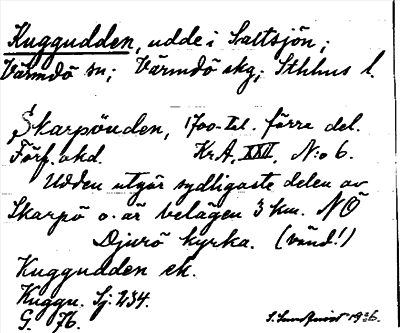 Kuggudden, udde i Saltsjön;
Värmdö sn; Värmdö skg; Sthlms l.
Skarpöudden, 1700-tal. förra del.
Förf. okd. Kr.A, XXII, N:o 6.
Udden utgör sydligaste delen av
Skarpö o. är belägen 3 km. NÖ
Djurö kyrka. (vänd!)
Kuggudden ek.
Kuggu. Sj. 234.
G. 76.
S. Lundqvist 1926.